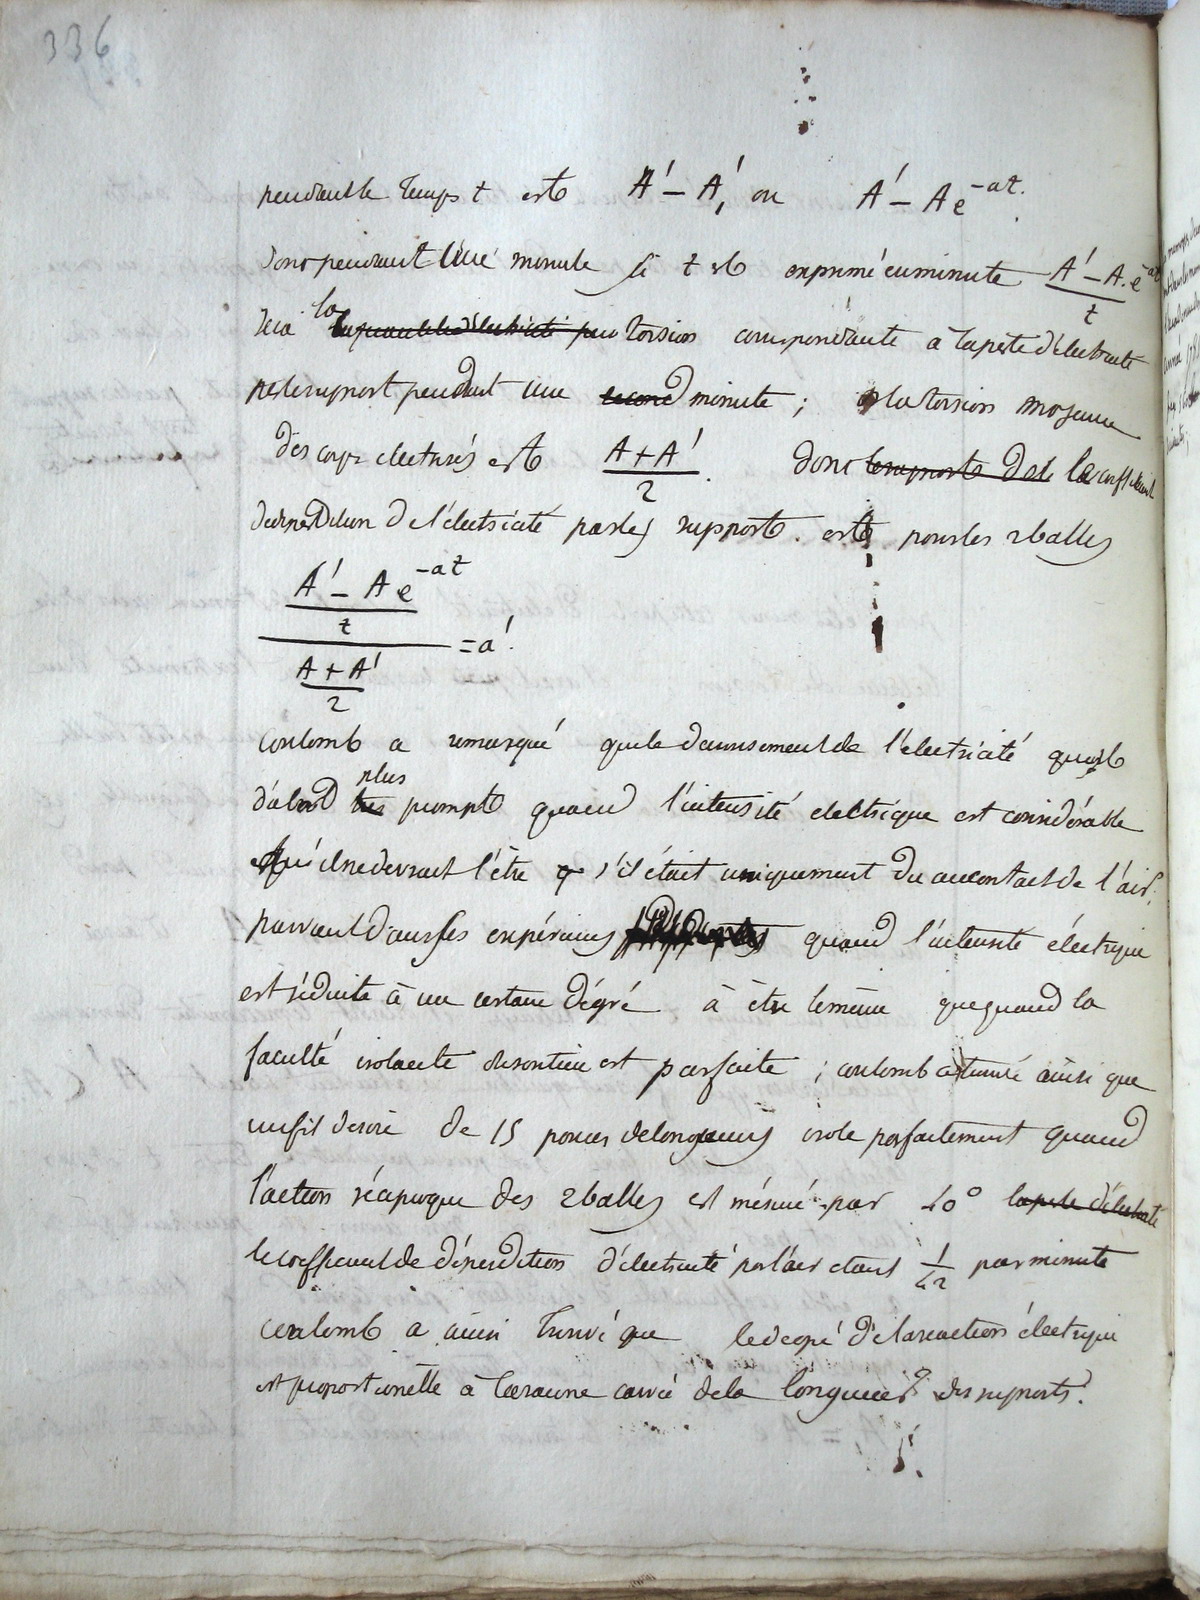 336
pendant le temps t est A' – A'₁ ou A' – A e^{-at}.
donc pendant une minute si t est exprimé en minute (A' – A.e^{-at})/t
sera la torsion correspondante à la perte d'électricité
par le support pendant une second minute ; or la torsion moyenne
des corps electrisés est (A + A')/2. donc le rapport de le coefficient
deperdition de l'électricité par les supports. est pour les 2 balles
((A' – A e^{-at})/t) / ((A + A')/2) = a'.
coulomb a remarqué que le decroissement de l'électricité qui est
d'abord très plus prompt quand l'intensité electrique est considérable
qu'il ne devrait l'être s'il était uniquement du au contact de l'air.
parvient dans ses expériences quand l'intensité électrique
est réduite à un certain dégré à être le même que quand la
faculté isolante du soutien est parfaite ; coulomb a trouvé ainsi que
un fil de soie de 15 pouces de longueurs isole parfaitement quand
l'action réciproque des 2 balles est mésuré par 40° la perte d'électricité
le coefficient de déperdition d'électricité par l'air étant 1/42 par minute
coulomb a aussi trouvé que le degré de la reaction électrique
est proportionelle à la racine carrée de la longueur des supports.